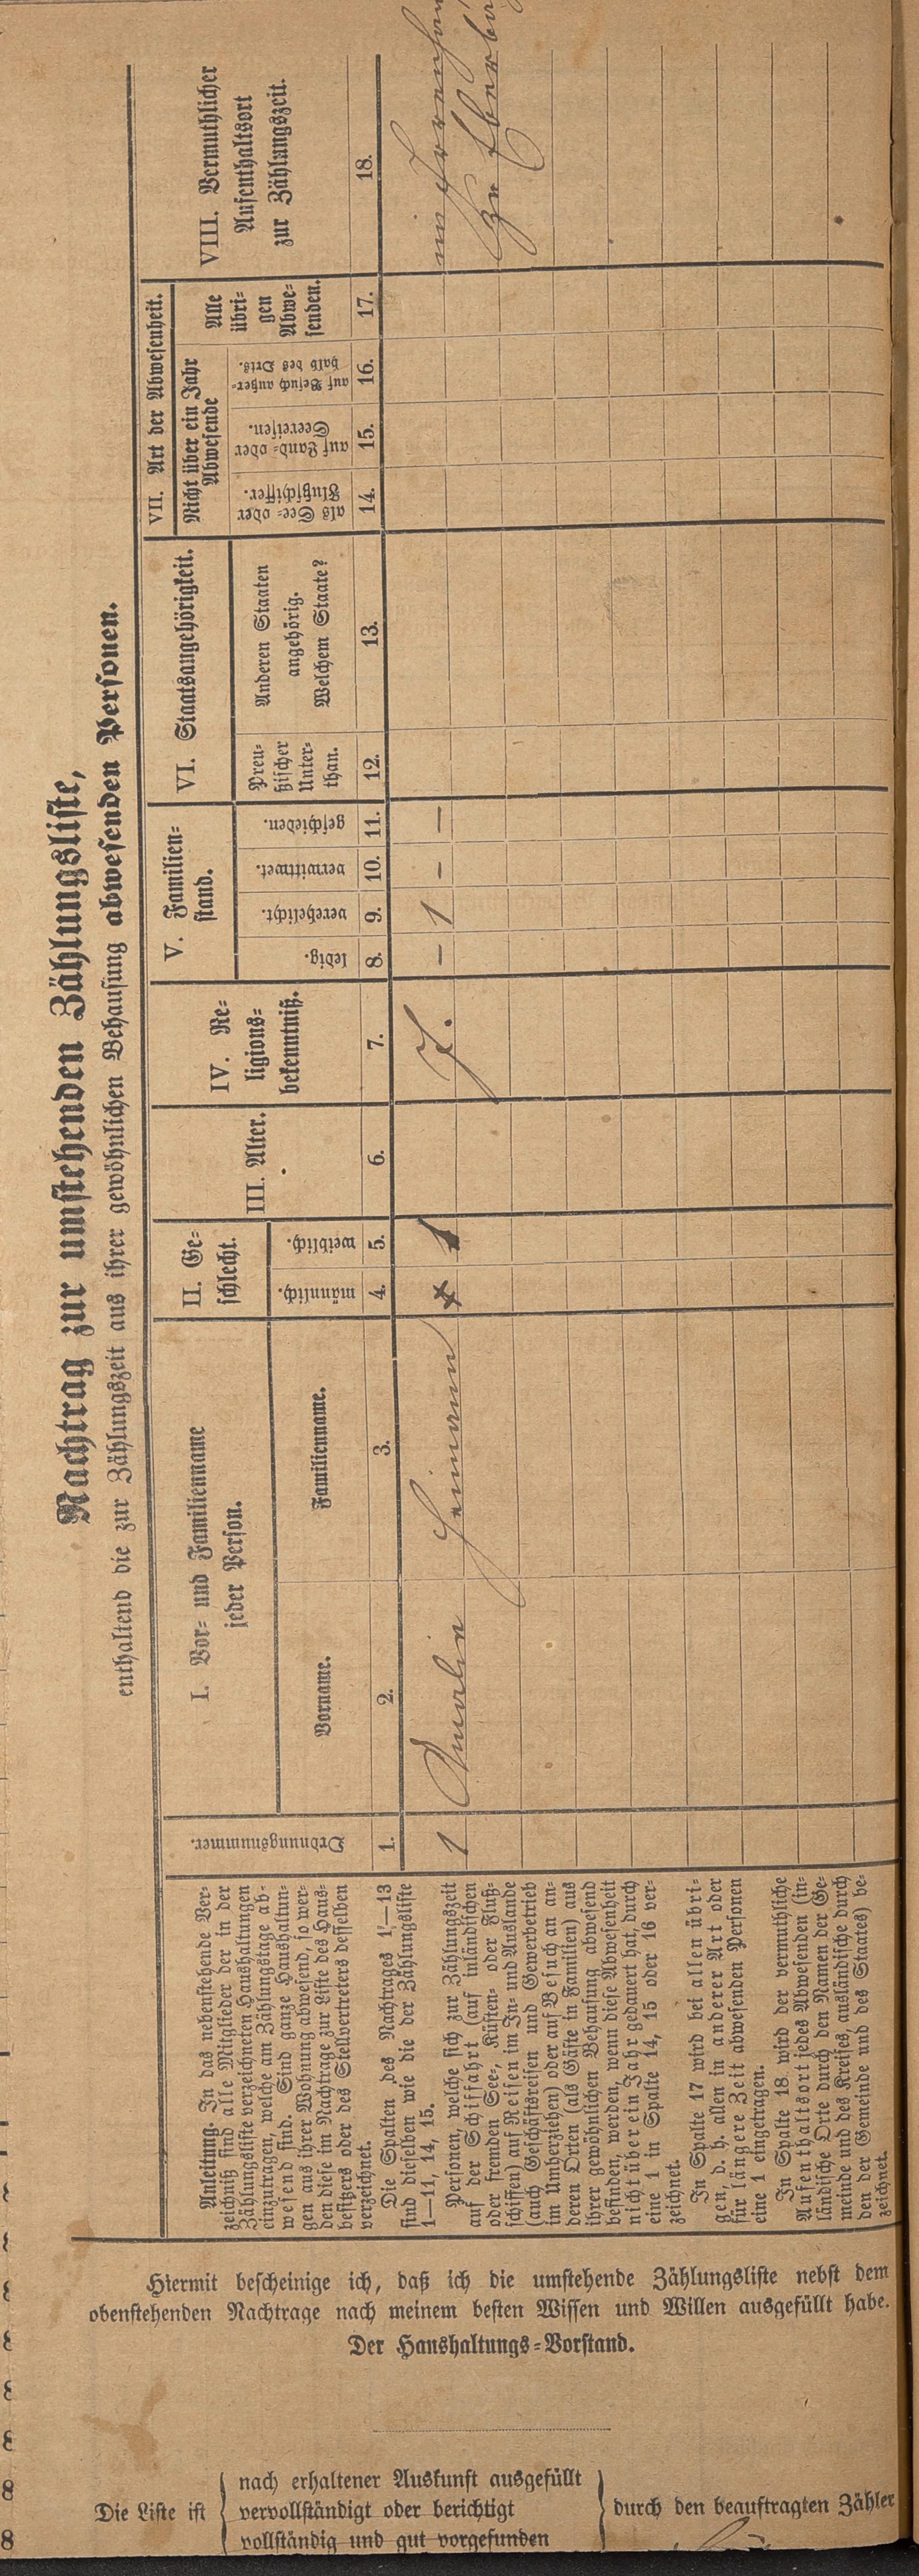 Nachtrag zur umstehenden Zählungsliste,
enthaltend die zur Zählungszeit aus ihrer gewöhnlichen Behausung abwesenden Personen.
Anleitung. In das nebenstehende Ver-
zeichniß sind alle Mitglieder der in der
Zählungsliste verzeichneten Haushaltungen
einzutragen, welche am Zählungstage ab-
wesend sind. Sind ganze Haushaltun-
gen aus ihrer Wohnung abwesend, so wer-
den diese im Nachtrage zur Liste des Haus-
besitzers oder des Stellvertreters desselben
verzeichnet.
Die Spalten des Nachtrages 1—13
sind dieselben wie die der Zählungsliste
1—11, 14, 15.
Personen, welche sich zur Zählungszeit
auf der Schiffahrt (auf inländischen
oder fremden See-, Küsten- oder Fluß-
schiffen) auf Reisen im In- und Auslande
(auch Geschäftsreisen und Gewerbetrieb
im Umherziehen) oder auf Besuch an an-
deren Orten (als Gäste in Familien) aus
ihrer gewöhnlichen Behausung abwesend
befinden, werden, wenn diese Abwesenheit
nicht über ein Jahr gedauert hat, durch
eine 1 in Spalte 14, 15 oder 16 ver-
zeichnet.
In Spalte 17 wird bei allen übri-
gen, d. h. allen in anderer Art oder
für längere Zeit abwesenden Personen
eine 1 eingetragen.
In Spalte 18 wird der vermuthliche
Aufenthaltsort jedes Abwesenden (in-
ländische Orte durch den Namen der Ge-
meinde und des Kreises, ausländische durch
den der Gemeinde und des Staates) be-
zeichnet.
Ordnungsnummer.
1.
I. Vor- und Familienname
jeder Person.
Vorname.
2.
Familienname.
3.
II. Ge-
schlecht.
männlich.
4.
weiblich.
5.
III. Alter.
6.
IV. Re-
ligions-
bekenntniß.
7.
V. Familien-
stand.
ledig.
8.
verehelicht.
9.
verwittwet.
10.
geschieden.
11.
VI. Staatsangehörigkeit.
Preu-
ßischer
Unter-
than.
12.
Anderen Staaten
angehörig.
Welchem Staate?
13.
VII. Art der Abwesenheit.
Nicht über ein Jahr
Abwesende
als See- oder
Flußschiffer.
14.
auf Land- oder
Seereisen.
15.
auf Besuch außer-
halb des Orts.
16.
Alle
übri-
gen
Abwe-
senden.
17.
VIII. Vermuthlicher
Aufenthaltsort
zur Zählungszeit.
18.
1 Amalie Heimann 1 – 1 – –
im
zu
Hiermit bescheinige ich, daß ich die umstehende Zählungsliste nebst dem
obenstehenden Nachtrage nach meinem besten Wissen und Willen ausgefüllt habe.
Der Haushaltungs-Vorstand.
Die Liste ist
nach erhaltener Auskunft ausgefüllt
vervollständigt oder berichtigt
vollständig und gut vorgefunden
durch den beauftragten Zähler